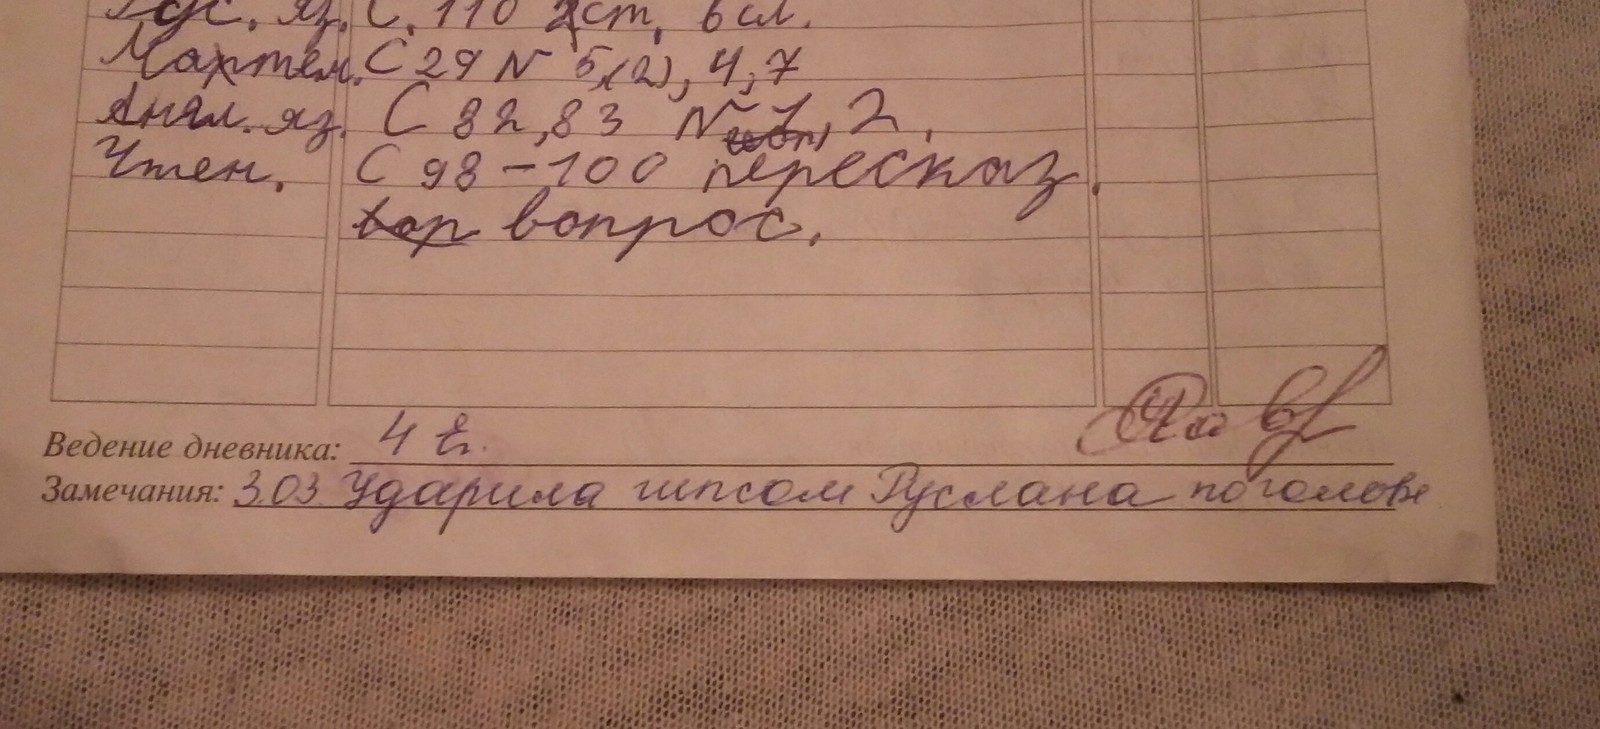 Рус. яз. С. 110 2 ст. в сл.
Матем. С 29 N 5, (2), 4, 7
Англ. яз. С 82, 83 N 1, 2.
Чтен. С 98 - 100 пересказ.
вопрос.
Ведение дневника: 4
Замечания: 3.03 Ударила гипсом Руслана по голове